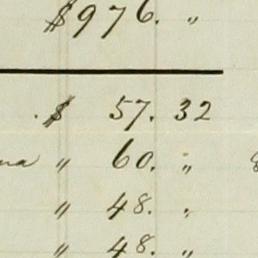 $976. "
. $ 57. 32
" 60. "
" 48. "
" 48. "